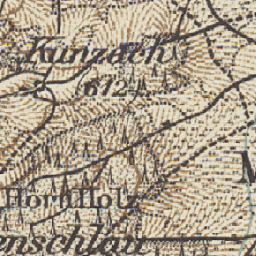 Kunzach
(612)
M
Horn Holz
enschlau